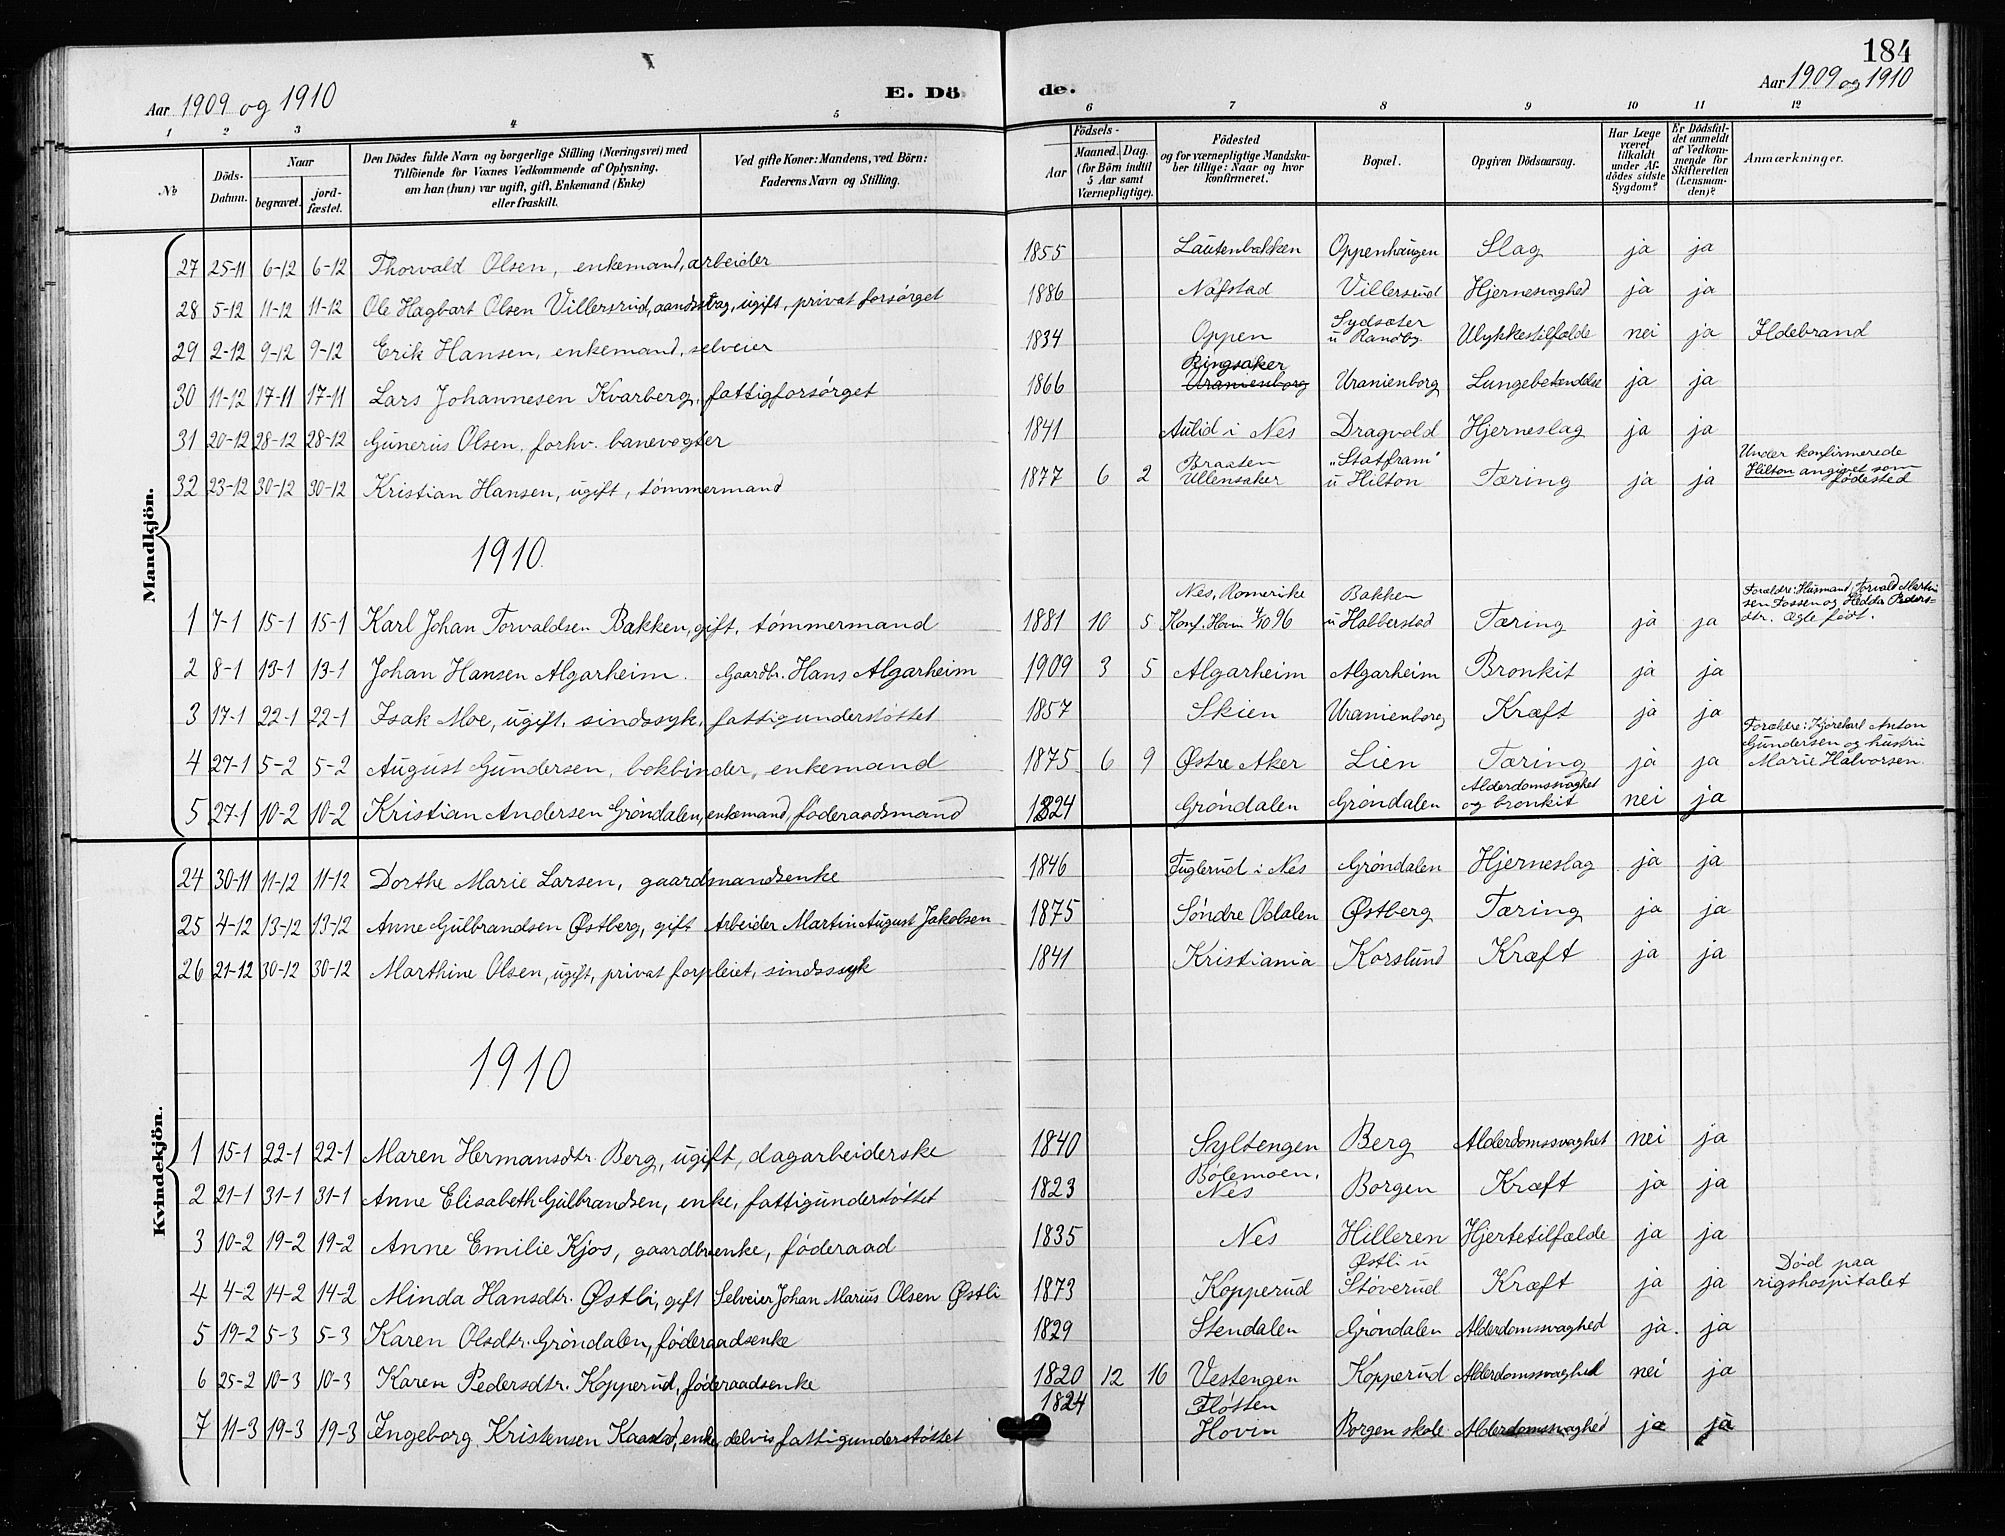 184
Aar 1909 og 1910
E. Döde.
Aar 1909 og 1910
1 2 3 4 5 6 7 8 9 10 11 12
No
Döds-Datum.
Naar
begravet.
jord-fæstet.
Den Dödes fulde Navn og borgerlige Stilling (Næringsvei) med
Tilföiende for Voxnes Vedkommende af Oplysning,
om han (hun) var ugift, gift, Enkemand (Enke)
eller fraskilt.
Ved gifte Koner: Mandens, ved Börn:
Faderens Navn og Stilling.
Födsels-
Aar
Maaned. Dag.
(for Börn indtil
5 Aar samt
Værnepligtige).
Födested
og for værnepligtige Mandska-
ber tillige: Naar og hvor
konfirmeret.
Bopæl.
Opgiven Dödsaarsag.
Har Læge
været
tilkaldt
under Af-
dödes sidste
Sygdom?
Er Dödsfal-
det anmeldt
af Vedkom-
mende for
Skifteretten
(Lensman-
den)?
Anmærkninger.
Mandkjön.
27 25-11 6-12 6-12 Thorvald Olsen, enkemand, arbeider 1855 Lautenbakken Oppenhaugen Slag ja ja
28 5-12 11-12 11-12 Ole Hagbart Olsen Villersrud, aandssvag, ugift, privat forsørget 1886 Nafstad Villersrud Hjernesvaghed ja ja
29 2-12 9-12 9-12 Erik Hansen, enkemand, selveier 1834 Oppen Sydsæter u Randby Ulykkestilfælde nei ja Ildebrand
30 11-12 17-11 17-11 Lars Johannesen Kvarberg, fattigforsørget 1866 Ringsaker Uranienborg Uranienborg Lungebetændelse ja ja
31 20-12 28-12 28-12 Gunerius Olsen, forhv. banevogter 1841 Aulid i Nes Dragvold Hjerneslag ja ja
32 23-12 30-12 30-12 Kristian Hansen, ugift, tømmermand 1877 6 2 Braaten Ullensaker "Statfram" u Hilton Tæring ja ja Under konfirmerede Hilton angivet som fødested
1910.
1 7-1 15-1 15-1 Karl Johan Torvaldsen Bakken, gift, tømmermand 1881 10 5 Nes, Romerike Konf. Hovin 4/10 96 Bakken u Habberstad Tæring ja ja Forældre: Husmand Torvald Martinsen Fossen og Hedda Pedersdtr. Ægte født.
2 8-1 13-1 13-1 Johan Hansen Algarheim. Gaardbr. Hans Algarheim 1909 3 5 Algarheim Algarheim Bronkit ja ja
3 17-1 22-1 22-1 Isak Moe, ugift, sindssyk, fattigunderstøttet 1857 Skien Uranienborg Kræft ja ja
4 27-1 5-2 5-2 August Gundersen, bokbinder, enkemand 1875 6 9 Østre Aker Lien Tæring ja ja Forældre: Kjørekarl Anton Gundersen og hustru Marie Halvorsen.
5 27-1 10-2 10-2 Kristian Andersen Grøndalen, enkemand, føderaadsmand 1824 Grøndalen Grøndalen Alderdomssvaghet og bronkit nei ja
Kvindekjön.
24 30-11 11-12 11-12 Dorthe Marie Larsen, gaardmandsenke 1846 Fuglerud i Nes Grøndalen Hjerneslag ja ja
25 4-12 13-12 13-12 Anne Gulbrandsen Østberg, gift Arbeider Martin August Jakobsen 1875 Søndre Odalen Østberg Tæring ja ja
26 21-12 30-12 30-12 Marthine Olsen, ugift, privat forpleiet, sindssyk 1841 Kristiania Korslund Kræft ja ja
1910
1 15-1 22-1 22-1 Maren Hermansdtr. Berg, ugift, dagarbeiderske 1840 Syltengen Berg Alderdomssvaghet nei ja
2 21-1 31-1 31-1 Anne Elisabeth Gulbrandsen, enke, fattigunderstøttet 1823 Bølemoen, Nes Borgen Kræft ja ja
3 10-2 19-2 19-2 Anne Emilie Kjos, gaardbrenke, føderaad 1835 Nes Hilleren Hjertetilfælde ja ja
4 4-2 14-2 14-2 Minda Hansdtr. Østli, gift Selveier Johan Marius Olsen Østli 1873 Kopperud Østli u Støverud Kræft ja ja Død paa rigshospitalet
5 19-2 5-3 5-3 Karen Olsdtr. Grøndalen, føderaadsenke 1829 Stendalen Grøndalen Alderdomssvaghed ja. ja
6 25-2 10-3 10-3 Karen Pedersdtr. Kopperud, føderaadsenke 1820 12 16 Vestengen Kopperud Alderdomssvaghed nei ja
7 11-3 19-3 19-3 Ingeborg Kristensen Kaastad, enke, delvis fattigunderstøttet 1824 Fløtten Hovin Borgen skole Alderdomssvaghed ja ja